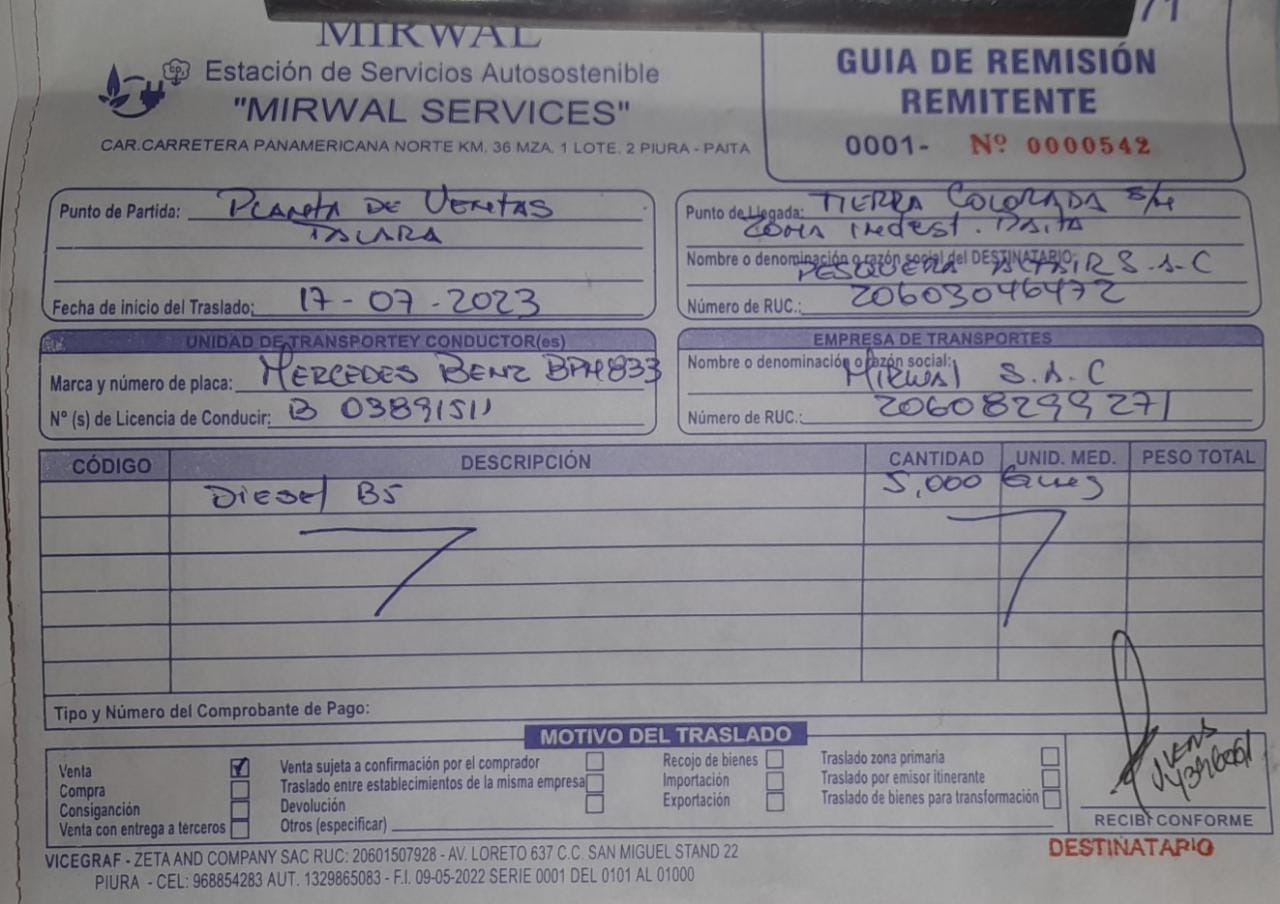 MIRWAL
Estación de Servicios Autosostenible
"MIRWAL SERVICES"
CAR.CARRETERA PANAMERICANA NORTE KM. 36 MZA. 1 LOTE. 2 PIURA - PAITA
GUIA DE REMISIÓN
REMITENTE
0001- Nº 0000542
Punto de Partida: PLANTA DE VENTAS
TALARA
Fecha de inicio del Traslado: 17-07-2023
Punto de Llegada: TIERRA COLORADA S/N
ZONA Indust. PAITA
Nombre o denominación o razón social del DESTINATARIO:
PESQUERA ALTAIR S.A.C
Número de RUC.: 20603046472
UNIDAD DE TRANSPORTEY CONDUCTOR(es)
Marca y número de placa: MERCEDES BENZ BPH833
Nº (s) de Licencia de Conducir: B 03891511
EMPRESA DE TRANSPORTES
Nombre o denominación o razón social:
Mirwal S.A.C
Número de RUC.: 20608299271
CÓDIGO DESCRIPCIÓN CANTIDAD UNID. MED. PESO TOTAL
Diesel B5 5,000
Tipo y Número del Comprobante de Pago:
MOTIVO DEL TRASLADO
Venta
Compra
Consignación
Venta con entrega a terceros
Venta sujeta a confirmación por el comprador
Traslado entre establecimientos de la misma empresa
Devolución
Otros (especificar)
Recojo de bienes
Importación
Exportación
Traslado zona primaria
Traslado por emisor itinerante
Traslado de bienes para transformación
RECIBI CONFORME
DESTINATARIO
VICEGRAF - ZETA AND COMPANY SAC RUC: 20601507928 - AV. LORETO 637 C.C. SAN MIGUEL STAND 22
PIURA - CEL: 968854283 AUT. 1329865083 - F.I. 09-05-2022 SERIE 0001 DEL 0101 AL 01000